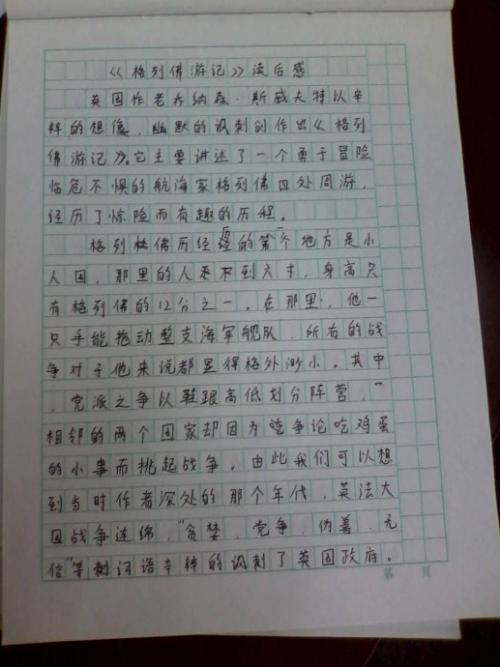 《格列佛游记》读后感
英国作老乔纳森·斯威夫特以辛
辣的想像，幽默的讽刺创作出《格列
佛游记》。它主要讲述了一个勇于冒险
临危不惧的航海家格列佛四处周游，
经历了惊险而有趣的历程。
格列佛历经的第一个地方是小
人国，那里的人不到六寸，身高只
有格列佛的12分之一。在那里，他一
只手能拖动整支海军舰队，所有的战
争对于他来说都显得格外渺小。其中
，党派之争以鞋跟高低划分阵营，
相邻的两个国家却因为争论吃鸡蛋
的小事而挑起战争。由此我们可以想
到当时作者深处的那个年代，英法大
国战争连绵，"贪婪，党争，伪善，无
信"等词语辛辣的讽刺了英国政府。
第 页